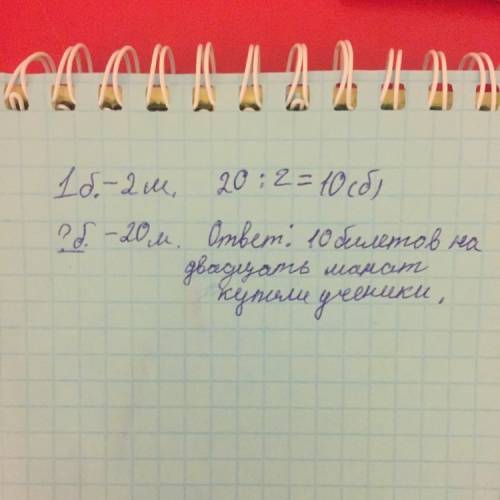 1б. - 2 м. 20 : 2 = 10 (б)
?б. - 20 м. Ответ: 10 билетов на
двадцать манат
купили ученики.